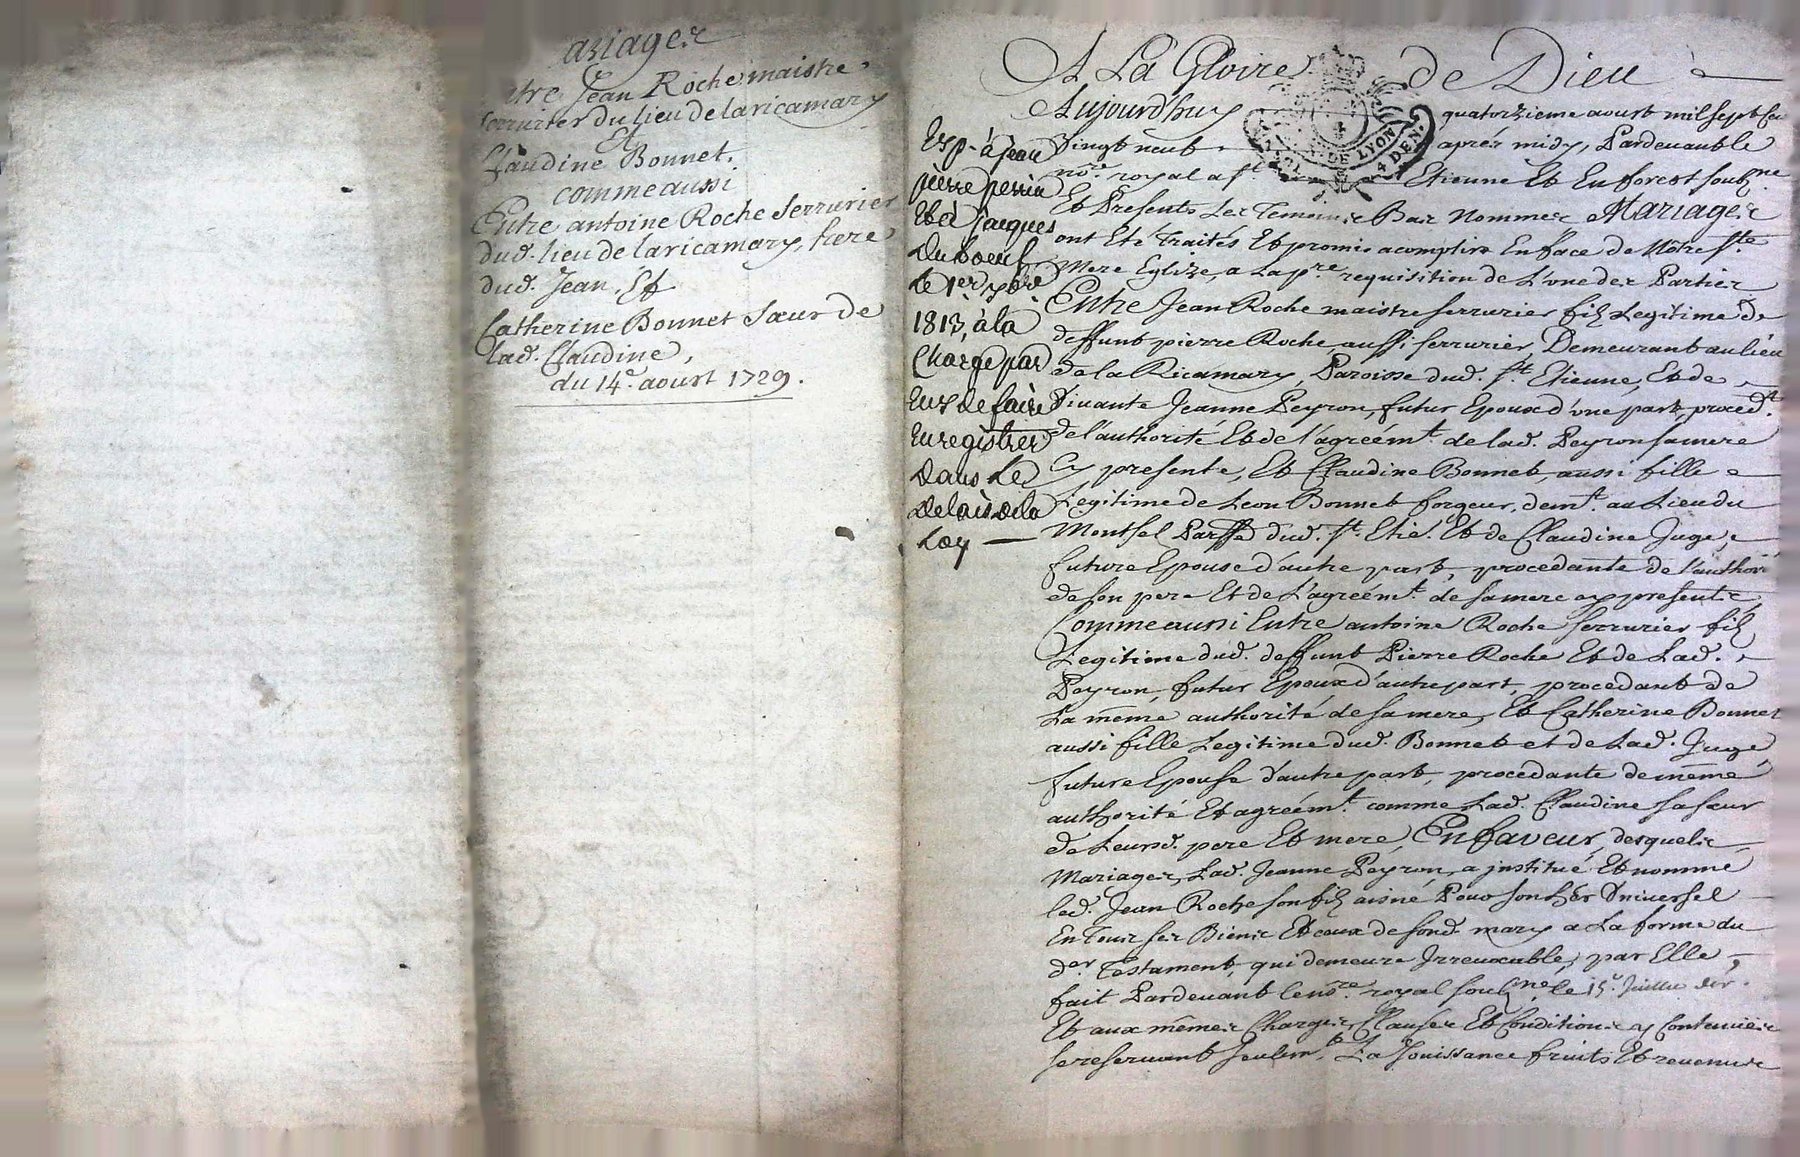 ariages
entre Jean Roche maistre
serrurier du lieu de laricamary
Et
Claudine Bonnet.
comme aussi
Entre antoine Roche Serrurier
dud. lieu de laricamary, frere
dud. Jean, Et
Catherine Bonnet sœur de
lad. Claudine,
du 14e. aoust 1729.
A La Gloire de Dieu
Aujourd'huy quatorzieme aoust mil sept cen
Vingt neuf aprés midy, Pardevant le
nore. royal a St Etienne Et En forest soubne
Et Presents Les Temoins Bas Nommes Mariages
ont Eté Traités Et promis acomplire En face de Nôtre Ste
Mere Eglize, a La pre. requisition de L'une des Parties
Entre Jean Roche maistre serrurier fils Legitime de
deffunt pierre Roche aussi serrurier, Demeurant au lieu
de la Ricamary, Paroisse dud. St. Etienne, Et de
Vivante Jeanne Peyron, futur Epoux d'une part, procedt.
de l'authorité Et de l'agréémt. de lad. Peyron sa mere
Cy presente, Et Claudine Bonnet, aussi fille
Legitime de Leon Bonnet forgeur, demt. au Lieu du
Montsel Parsse dud. St. Etie. Et de Claudine Juge,
future Epouse d'autre part, procedante de l'authori
de son pere Et de L'agréémt. de sa mere cy presente
Comme aussi Entre antoine Roche serrurier fils
Legitime dud. deffunt Pierre Roche Et de Lad.
Peyron, futur Epoux d'autre part, procedant de
La même authorité de sa mere, Et Catherine Bonnet
aussi fille Legitime dud. Bonnet et de Lad. Juge,
future Epouse d'autre part, procedante de même
authorité Et agréémt. comme Lad. Claudine sa sœur
de Leursd. pere Et mere, En faveur, desquels
Mariages, Lad. Jeanne Peyron, a institué Et nommé
led. Jean Roche son fils aisné Pour son her Universel
En Tous ses Biens Et ceux de sond. mary a La forme du
der. Testament, qui demeure Irrevocable, par Elle
fait Pardevant le nore. royal soubne, le 15e. Juillet der.
Et aux mêmes Charges, Clauses Et Conditions y Contenües
se reservant seulemt. La Jouissance fruits Et revenus
Exp. à jean
pierre perrin
Et à jacques
Duboeuf
le 1er. xbre
1813, à la
Charge par
Eux de faire
Enregistrer
dans le
delais de la
Loy
DE LYON
4 DEN.